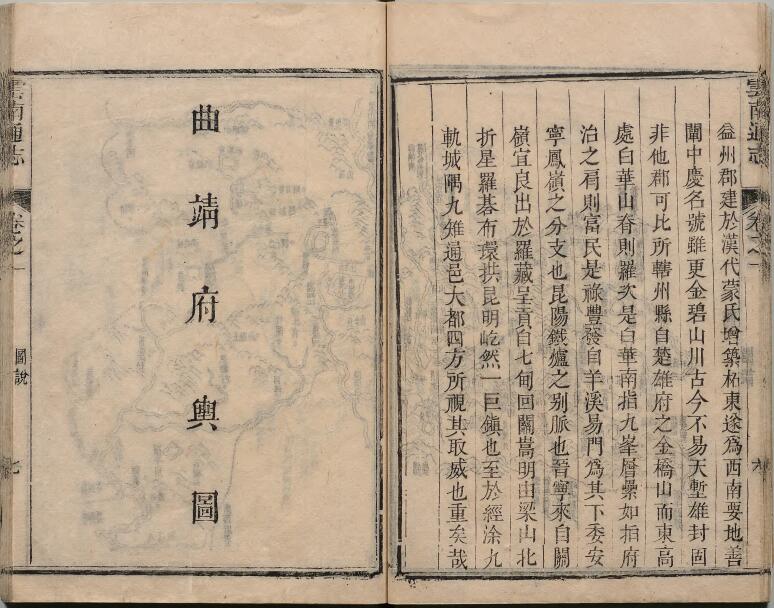 雲南通志
卷之一
六
益州郡建於漢代蒙氏增築柘東遂為西南要地善
闡中慶名號雖更金碧山川古今不易天塹雄封固
非他郡可比所轄州縣自楚雄府之金橋山而東高
處曰華山脊則羅次是白華南指九峯層纍如指府
治之肩則富民是祿豐發自羊溪易門為其下委安
寧鳳嶺之分支也昆陽鐵爐之别脈也晉寧來自關
嶺宜良出於羅藏呈貢自七甸回關嵩明由梁山北
折星羅碁布環拱昆明屹然一巨鎮也至於經涂九
軌城隅九雉通邑大都四方所視其取威也重矣哉
曲靖府輿圖
雲南通志
卷之一
圖說
七